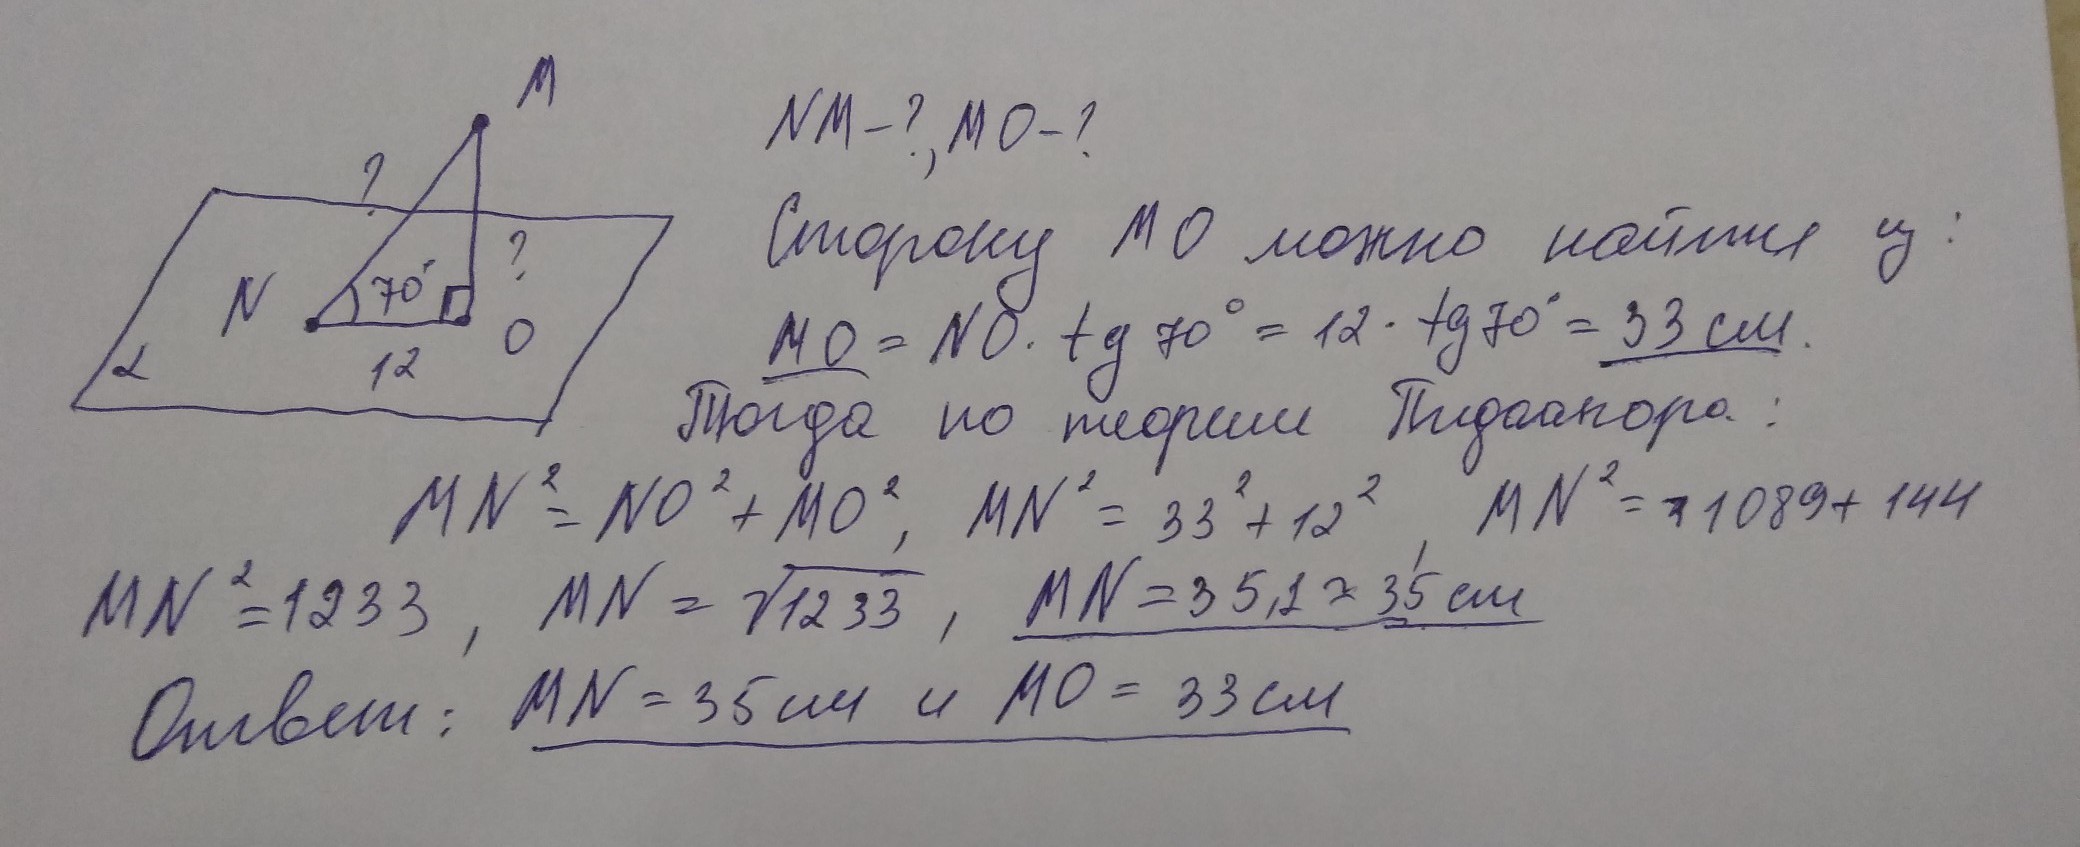 M
NM-?, MO-?
?
Сторону MO можно найти из:
?
N 70° O
MO = NO · tg 70° = 12 · tg 70° = 33 см.
α 12
Тогда по теореме Пифагора:
MN² = NO² + MO², MN² = 33² + 12², MN² = 1089 + 144
MN² = 1233, MN = √1233, MN = 35,1 ≈ 35 см
Ответ: MN = 35 см и MO = 33 см